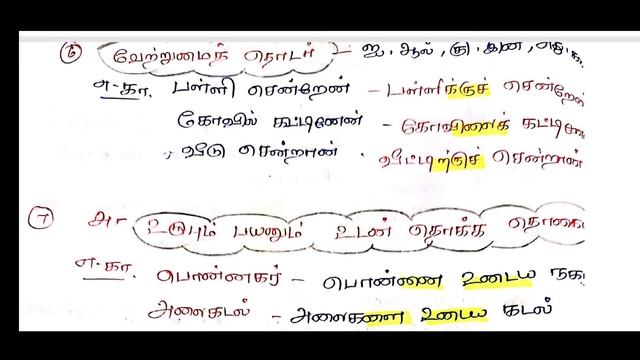 6 வேற்றுமைத் தொடர் – ஐ, ஆல், கு, இன், அது, க
எ.கா. பள்ளி சென்றேன் – பள்ளிக்குச் சென்றே
கோவில் கட்டினேன் – கோவிலைக் கட்டினே
வீடு சென்றான் வீட்டிற்குச் சென்றான்
7 அ உருபும் பயனும் உடன் தொக்க தொகை
எ.கா. பொன்னகர் – பொன்னை உடைய நக
அலைகடல் – அலைகளை உடைய கடல்